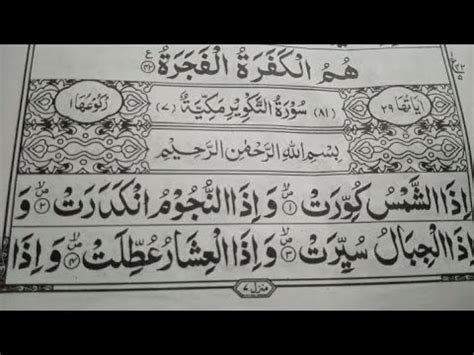 هُمُ الْكَفَرَةُ الْفَجَرَةُ ﴿۴۲﴾
اٰيَاتُهَا ۲۹ (۸۱) سُوْرَةُ التَّكْوِيْرِ مَكِّيَّةٌ (۷) رُكُوْعُهَا ۱
بِسْمِ اللّٰهِ الرَّحْمٰنِ الرَّحِيْمِ
اِذَا الشَّمْسُ كُوِّرَتْ ﴿۱﴾ وَ اِذَا النُّجُوْمُ انْكَدَرَتْ ﴿۲﴾ وَ
اِذَا الْجِبَالُ سُيِّرَتْ ﴿۳﴾ وَ اِذَا الْعِشَارُ عُطِّلَتْ ﴿۴﴾ وَ اِذَا
منزل ۷